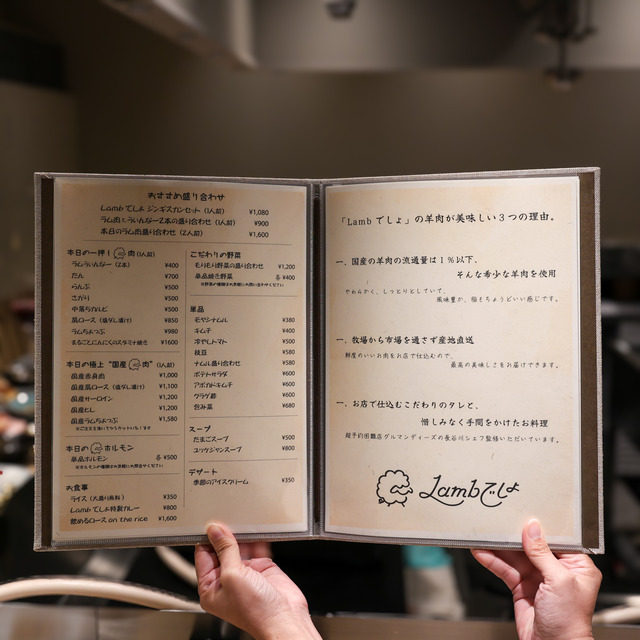 おすすめ盛り合わせ
Lamb でしょ ジンギスカンセット (1人前) ¥1,080
ラム肉とうぃんなー2本の盛り合わせ (1人前) ¥900
本日のラム肉盛り合わせ (2人前) ¥1,600
本日の一押し 肉 (1人前)
ラムうぃんなー (2本) ¥400
たん ¥700
らんぷ ¥500
さがり ¥500
中落ちカルビ ¥500
肩ロース (塩ダレ漬け) ¥850
ラムちょっぷ ¥980
まるごとにんにくのスタミナ焼き ¥1600
本日の極上 "国産 肉" (1人前)
国産赤身肉 ¥1,000
国産肩ロース (塩ダレ漬け) ¥1,100
国産サーロイン ¥1,200
国産ヒレ ¥1,200
国産ラムちょっぷ ¥1,580
本日の ホルモン
単品ホルモン 各 ¥500
お食事
ライス (大盛り無料) ¥350
Lamb でしょ特製カレー ¥800
飲めるロース on the rice ¥1,600
こだわりの野菜
もりもり野菜の盛り合わせ ¥1,200
単品焼き野菜 各 ¥400
単品
モヤシナムル ¥380
キムチ ¥400
冷やしトマト ¥500
枝豆 ¥580
ナムル盛り合わせ ¥580
ポテトサラダ ¥600
アボカドキムチ ¥600
クラゲ酢 ¥600
包み菜 ¥680
スープ
たまごスープ ¥500
ユッケジャンスープ ¥800
デザート
季節のアイスクリーム ¥350
「Lamb でしょ」の羊肉が美味しい3つの理由。
一、国産の羊肉の流通量は1%以下、
そんな希少な羊肉を使用
やわらかく、しっとりとしていて、
風味豊か、脂もちょうどいい感じです。
一、牧場から市場を通さず産地直送
鮮度のいいお肉をお店で仕込むので、
最高の美味しさをお届けできます。
一、お店で仕込むこだわりのタレと、
惜しみなく手間をかけたお料理
超予約困難店グルマンディーズの長谷川シェフ監修いただいています。
Lambでしょ